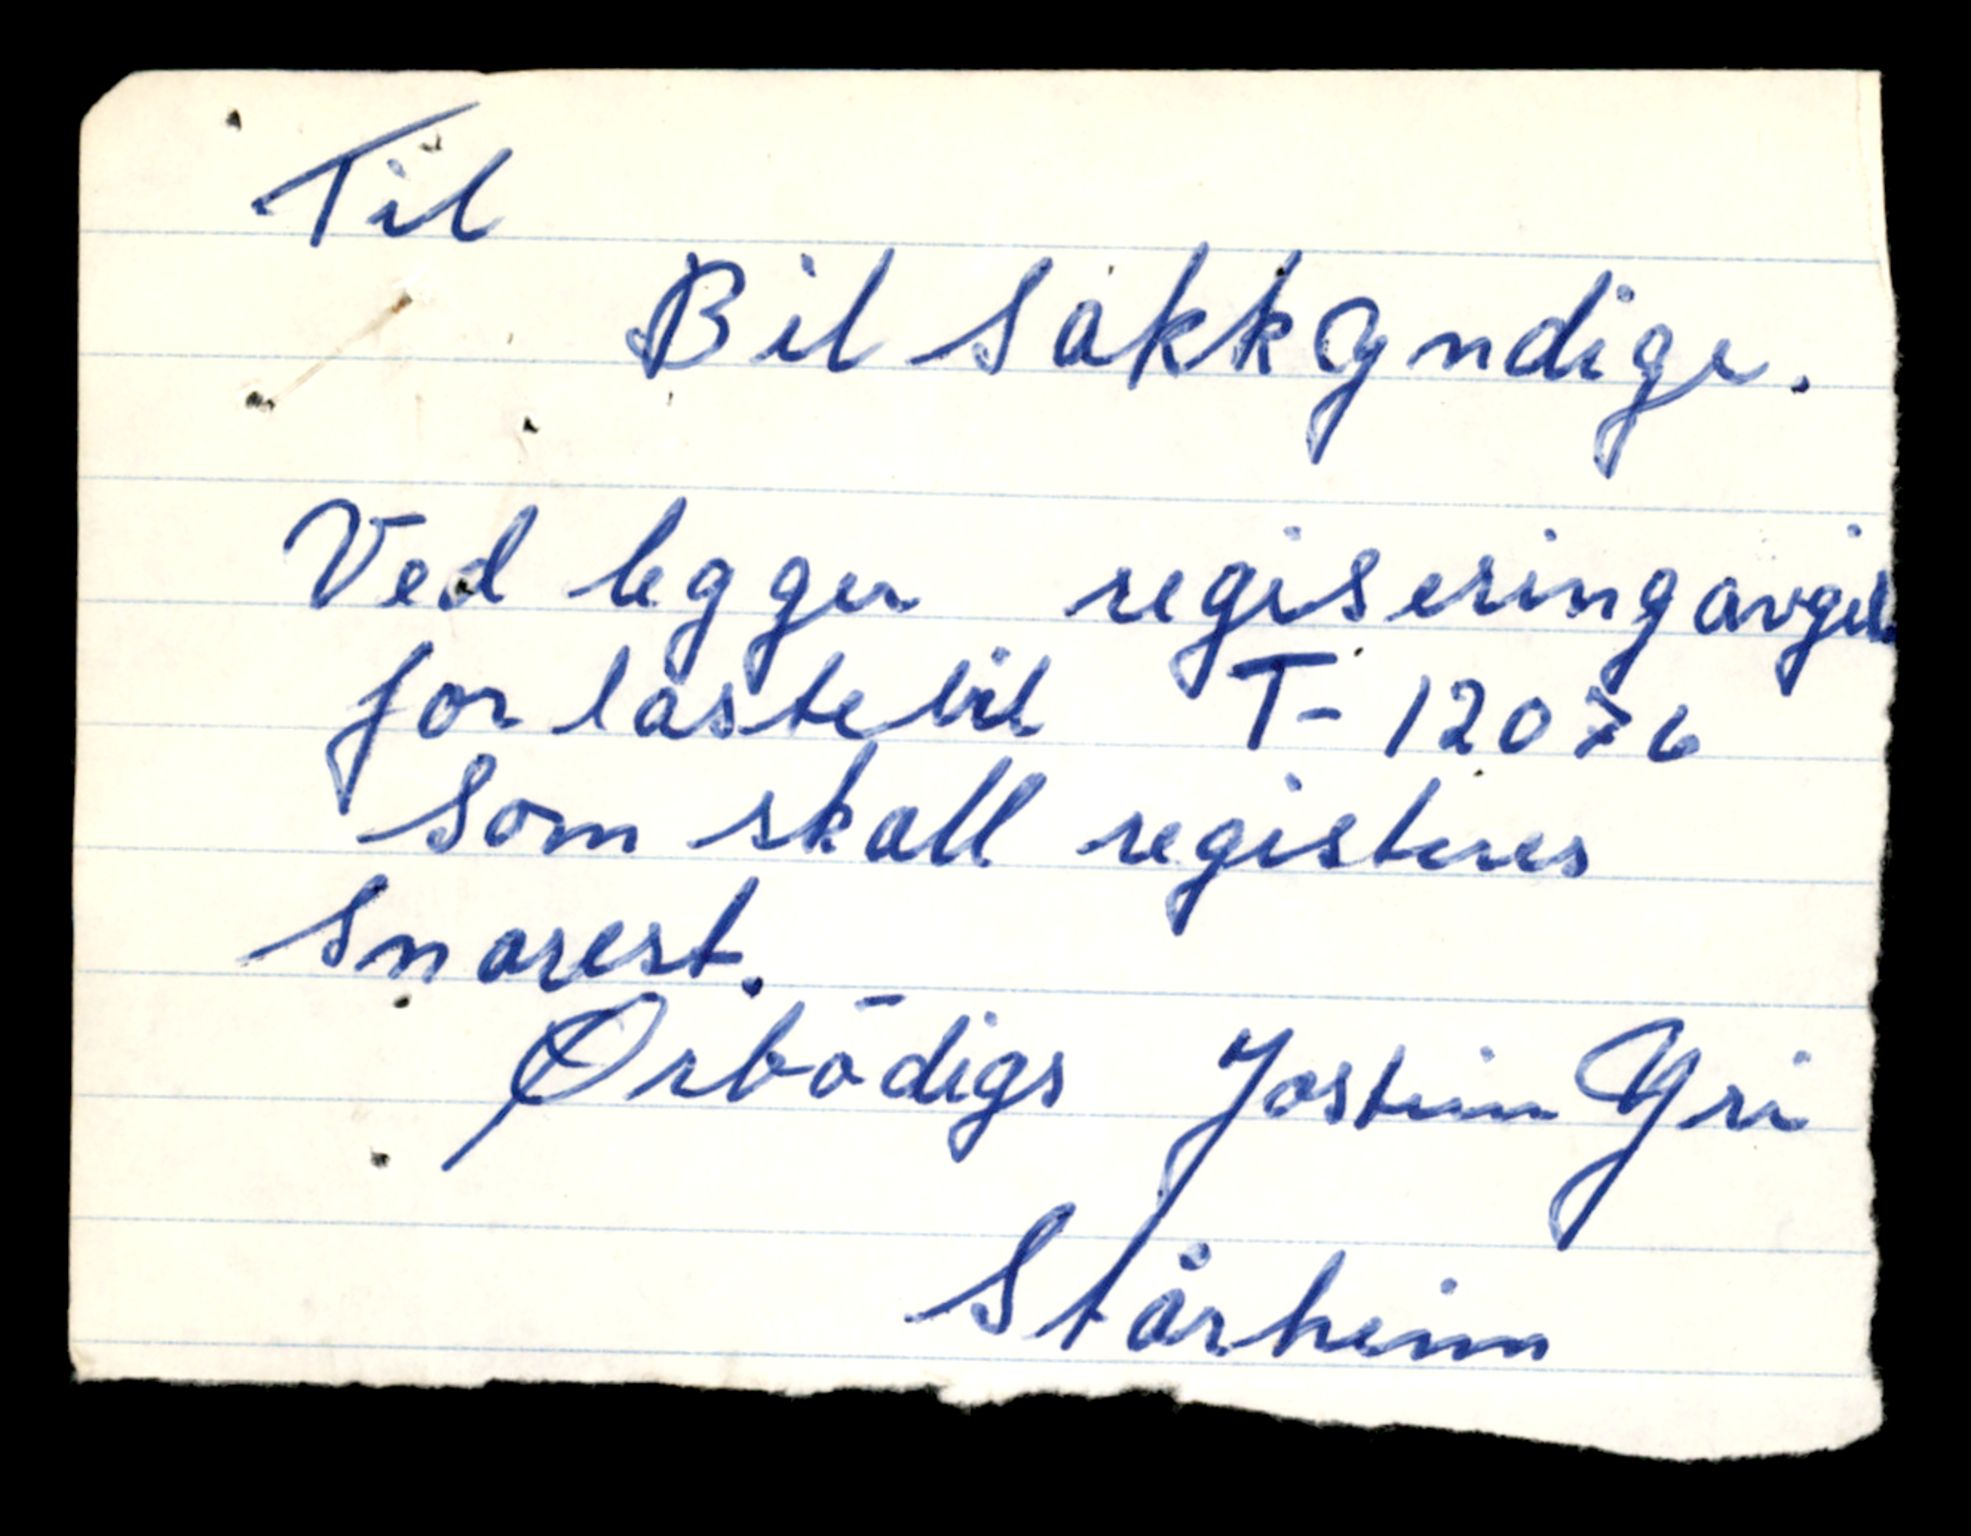 Til
Bil sakkyndige.
Ved legger regisering avgif
for lastebil T-12076
som skall registeres
snarest.
Ørbödigs Jostein Yri
Stårheim